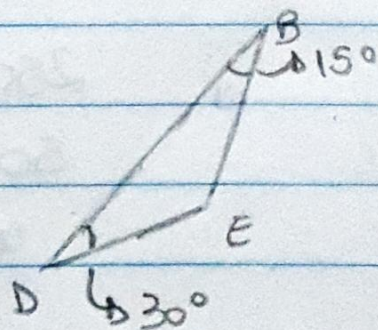 B
15°
E
D
30°